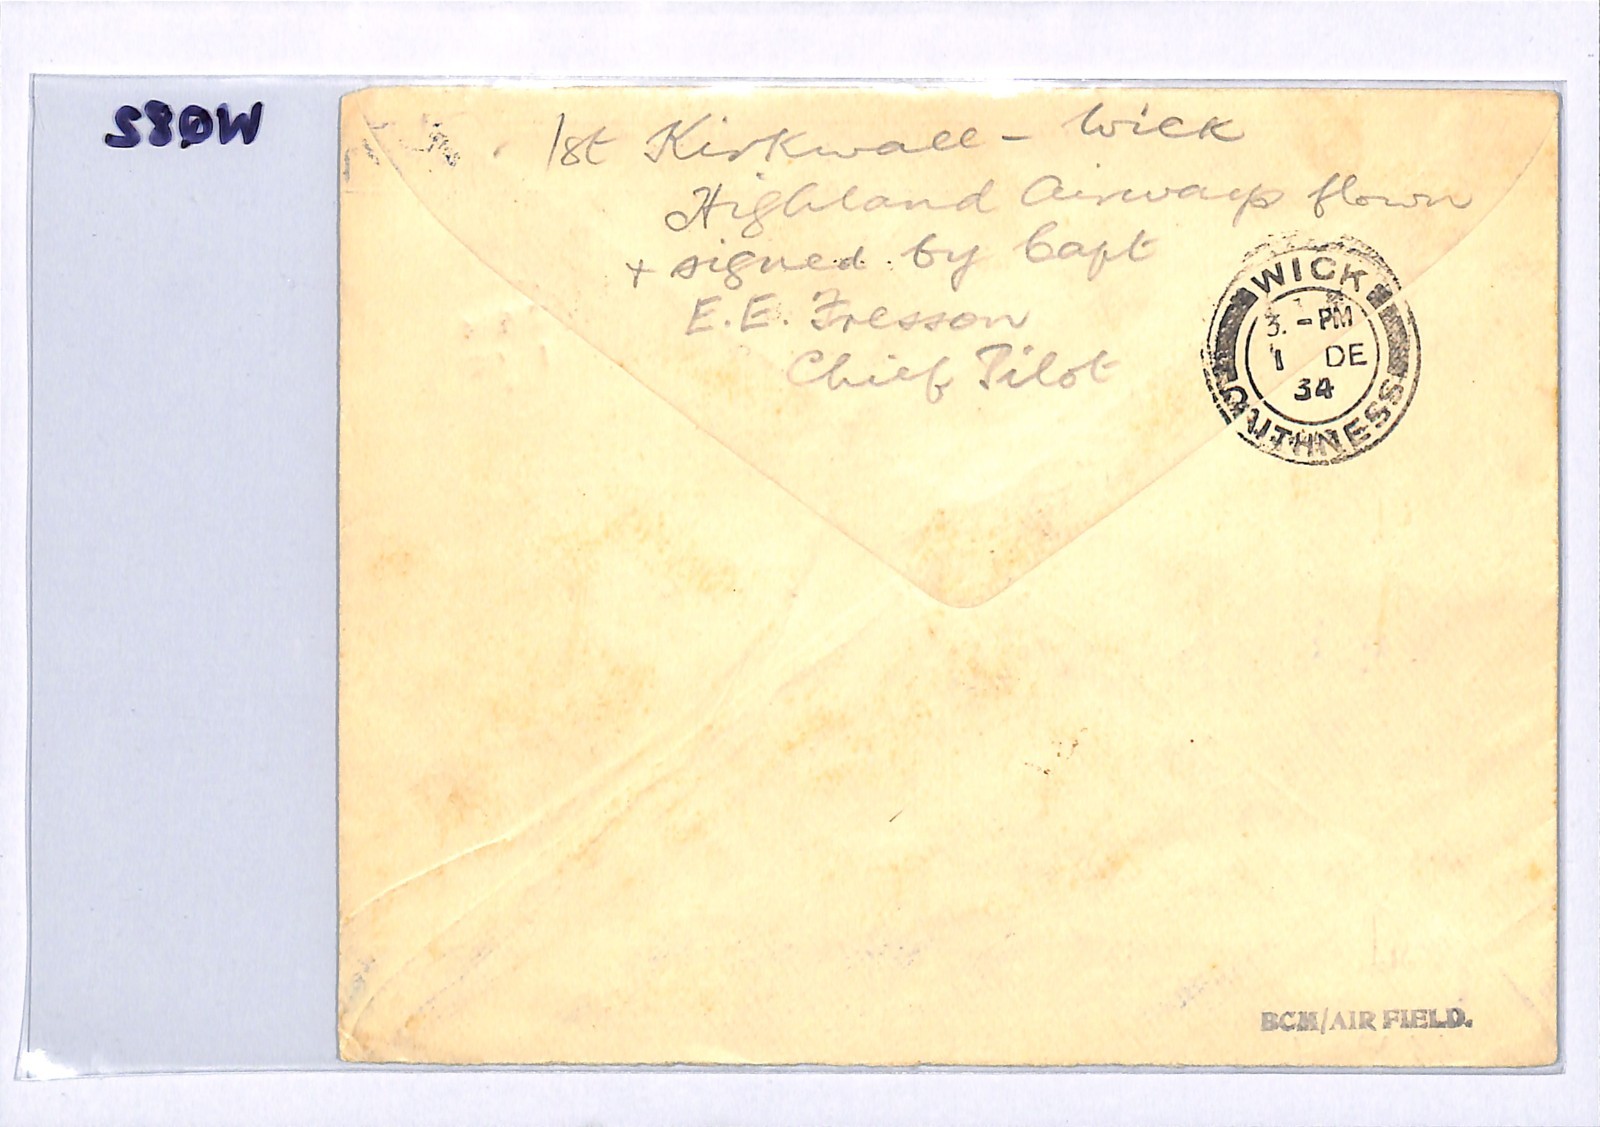 WØ82
1st Kirkwall - Wick
Highland Airways flown
+ signed by Capt
E.E. Fresson
Chief Pilot
WICK
3. - PM
1 DE
34
CAITHNESS
BCM/AIR FIELD.